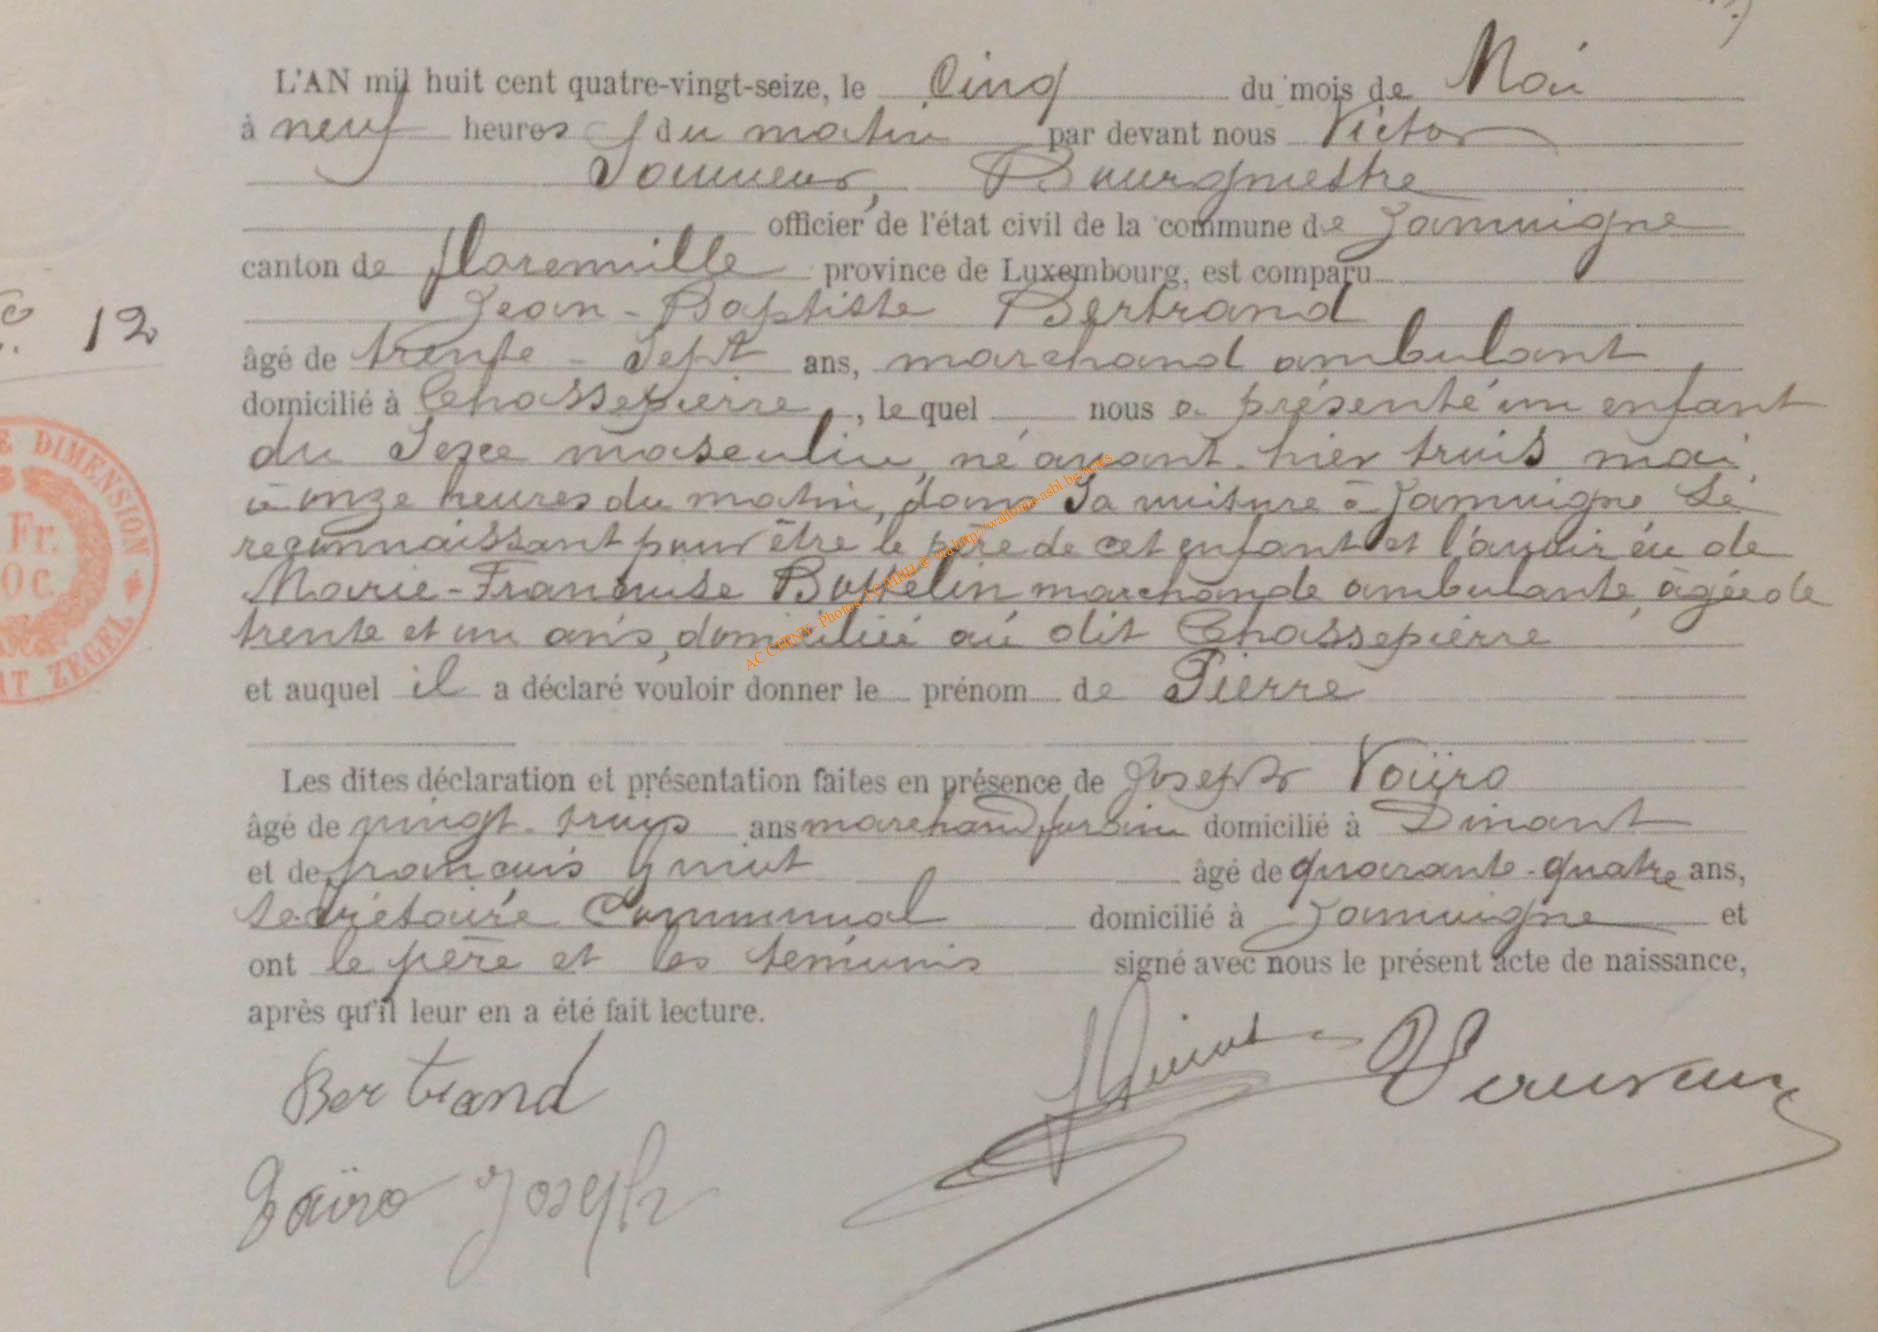 L'AN mil huit cent quatre-vingt-seize, le Cinq du mois de Mai
à neuf heures du matin par devant nous Victor
Bourgmestre
officier de l'état civil de la commune de Jamoigne
canton de florenville province de Luxembourg, est comparu
Jean-Baptiste Bertrand
N° 12
âgé de trente-sept ans, marchand ambulant
domicilié à Chassepierre, le quel nous a présenté un enfant
du sexe masculin, né avant-hier trois mai
à onze heures du matin, dans sa voiture à Jamoigne se
reconnaissant pour être le père de cet enfant et l'avoir eu de
Marie-Françoise marchande ambulante, âgée de
trente et un ans, domiciliée au dit Chassepierre
et auquel il a déclaré vouloir donner le prénom de Pierre
Les dites déclaration et présentation faites en présence de Joseph
âgé de vingt-trois ans marchand forain domicilié à Dinant
et de françois âgé de quarante-quatre ans,
secrétaire Communal domicilié à Jamoigne et
ont le père et les témoins signé avec nous le présent acte de naissance,
après qu'il leur en a été fait lecture.
Bertrand
Joseph
DIMENSION
Fr.
C.
ZEGEL
AC CHINY - Photos